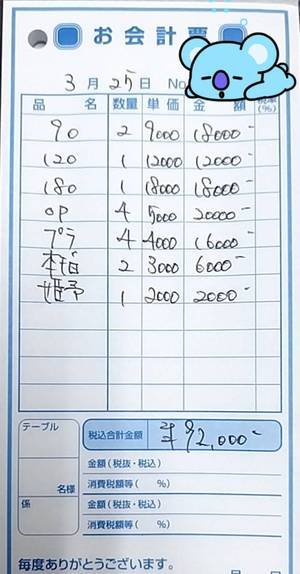 お会計票
3月25日 No
品名 数量 単価 金額 税率(%)
90 2 9000 18000-
120 1 12000 12000-
180 1 18000 18000-
OP 4 5000 20000-
プラ 4 4000 16000-
本指 2 3000 6000-
姫予 1 2000 2000-
テーブル
税込合計金額 ¥92,000-
金額(税抜・税込)
名様 消費税額等( %)
係 金額(税抜・税込)
消費税額等( %)
毎度ありがとうございます。